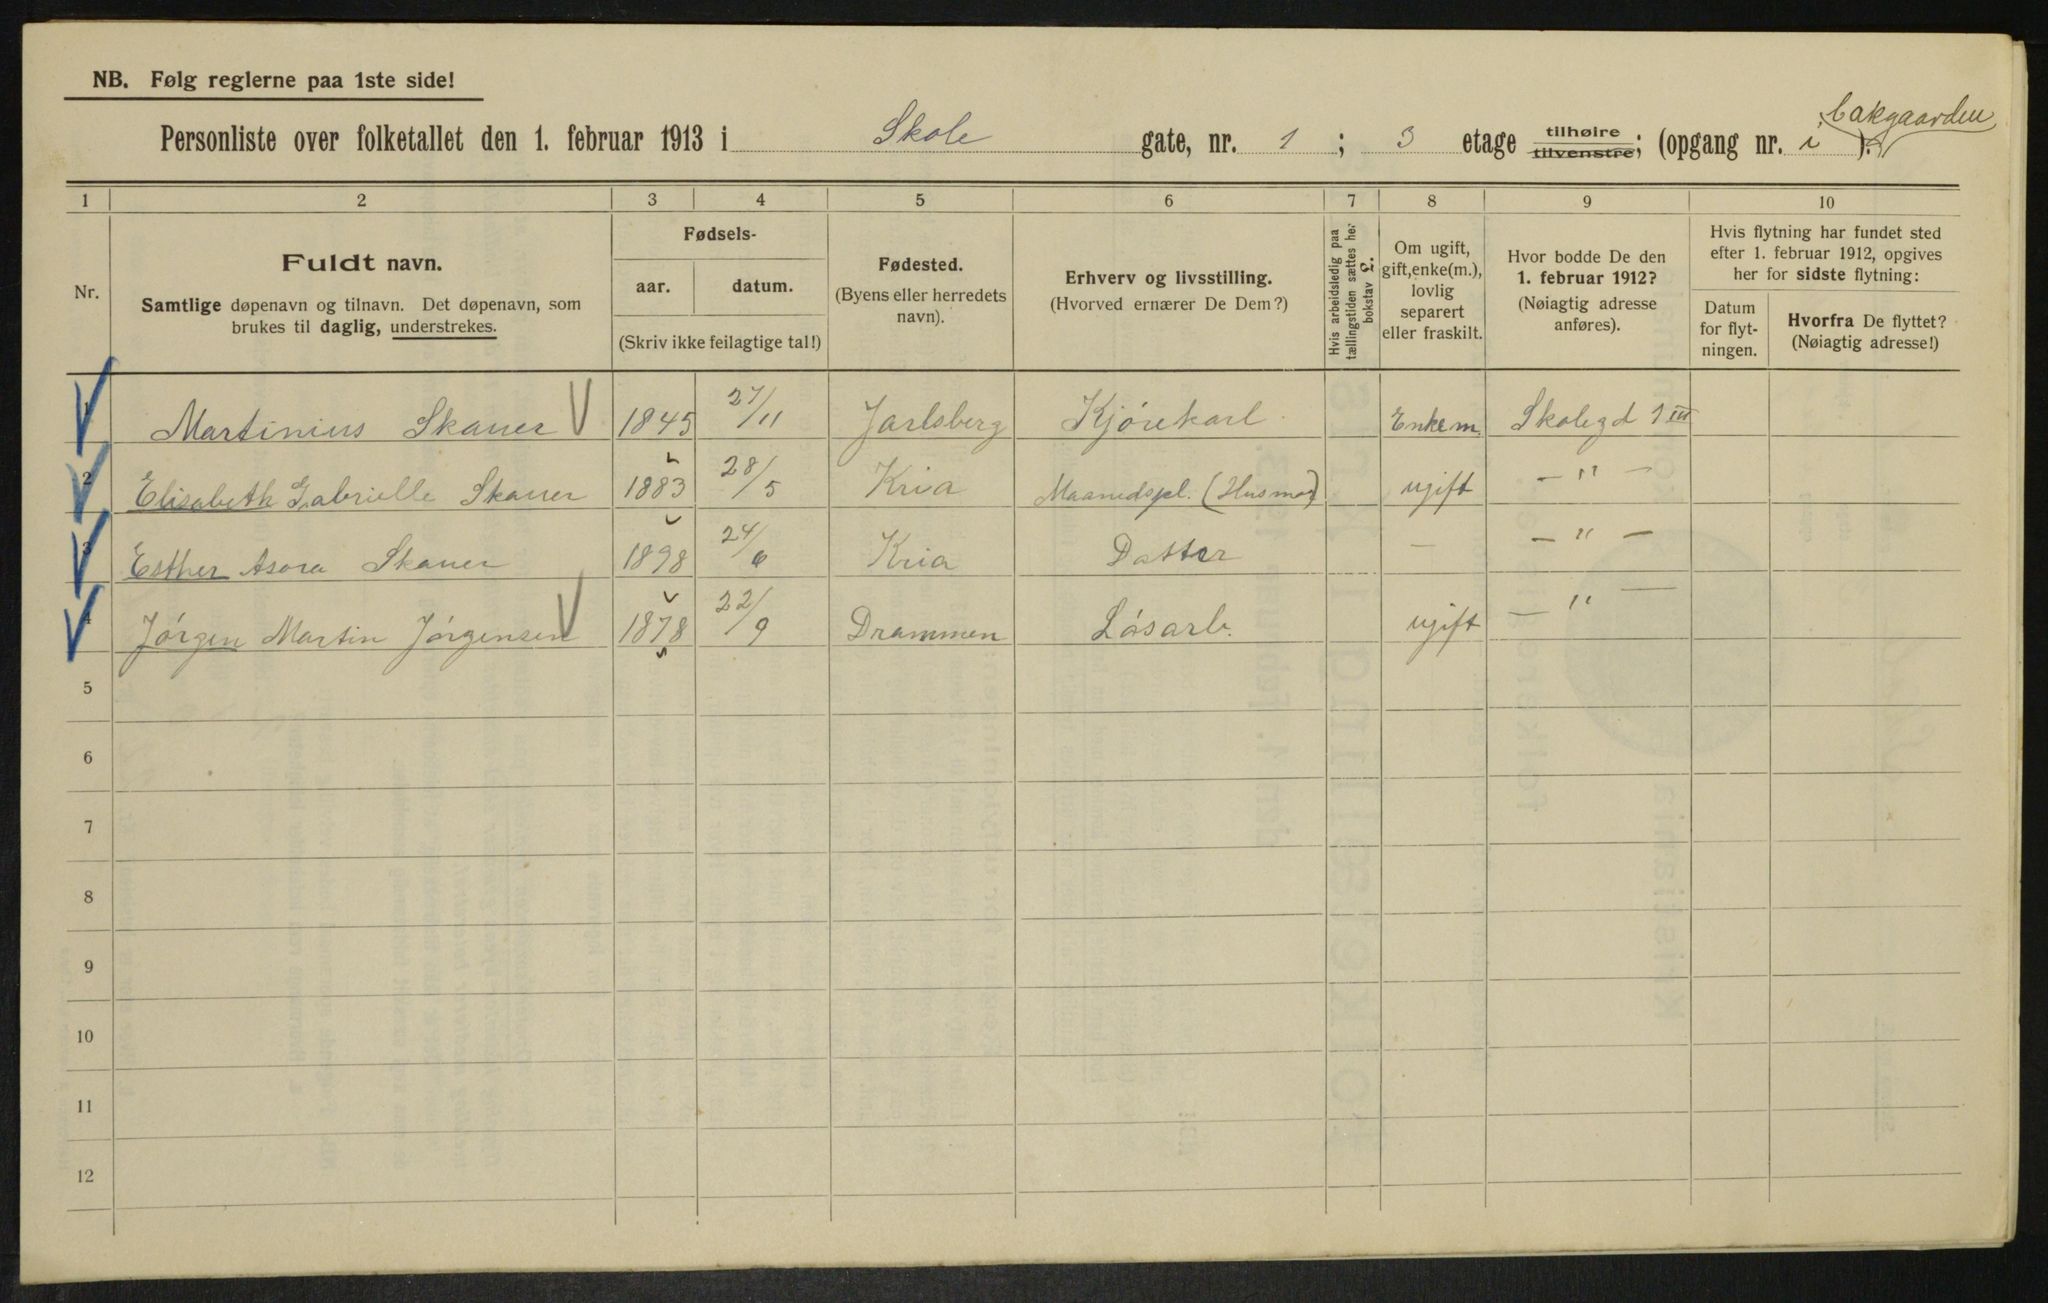 NB. Følg reglerne paa 1ste side!
Personliste over folketallet den 1. februar 1913 i Skole gate, nr. 1 ; 3 etage tilhøire tilvenstre; (opgang nr. i bakgaarden ).
1 2 3 4 5 6 7 8 9 10
Nr.
Fuldt navn.
Samtlige døpenavn og tilnavn. Det døpenavn, som
brukes til daglig, understrekes.
Fødsels-
aar. datum.
(Skriv ikke feilagtige tal!)
Fødested.
(Byens eller herredets
navn).
Erhverv og livsstilling.
(Hvorved ernærer De Dem?)
Hvis arbeidsledig paa
tællingstiden sættes her
bokstav £.
Om ugift,
gift, enke(m.),
lovlig
separert
eller fraskilt.
Hvor bodde De den
1. februar 1912?
(Nøiagtig adresse
anføres).
Hvis flytning har fundet sted
efter 1. februar 1912, opgives
her for sidste flytning:
Datum
for flyt-
ningen.
Hvorfra De flyttet?
(Nøiagtig adresse!)
1 Martinius Skauer 1845 27/11 Jarlsberg Kjørekarl Enkem. Skolegd 1 III
2 Elisabeth Gabrielle Skauer 1883 28/5 Kria Maanedspl. (Husmor) ugift — " —
3 Esther Asora Skauer 1898 24/6 Kria Datter — — " —
4 Jørgen Martin Jørgensen 1878 22/9 Drammen Løsarb. ugift — " —
5
6
7
8
9
10
11
12